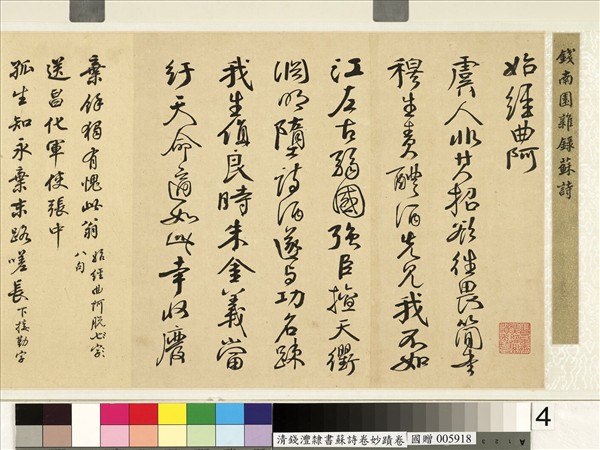 錢南園雜錄蘇詩
始經曲阿
虞人非其招欲往畏簡書
穆生責醴酒先見我不如
江左古弱國強臣擅天衢
淵明隋詩酒遂與功名疎
我生值良時朱金義當
紆天命適如此幸收廢
棄餘獨有愧此翁 始經曲阿脫
八句
送昌化軍使張中
孤生知永棄末路嗟長 下接勤字
4
清錢澧隸書蘇詩卷妙蹟卷 國贈 005918